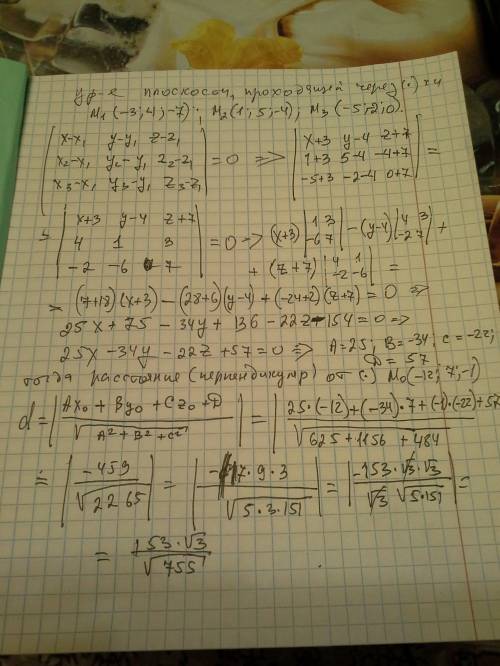 ур-е плоскости, проходящей через (·) ки
M₁(-3; 4; -7); M₂(1; 5; -4); M₃(-5; 2; 0).
|x-x₁ y-y₁ z-z₁| |x+3 y-4 z+7|
|x₂-x₁ y₂-y₁ z₂-z₁| = 0 => |1+3 5-4 -4+7| =
|x₃-x₁ y₃-y₁ z₃-z₁| |-5+3 -2-4 0+7|
=> |x+3 y-4 z+7|
|4 1 3| = 0 -> (x+3) |1 3; -6 7| - (y-4) |4 3; -2 7| +
|-2 -6 7| + (z+7) |4 1; -2 -6| =
(7+18)(x+3) - (28+6)(y-4) + (-24+2)(z+7) = 0 =>
25x + 75 - 34y + 136 - 22z - 154 = 0 =>
25x - 34y - 22z + 57 = 0 => A = 25; B = -34; C = -22;
D = 57
тогда расстояние (перпендикуляр) от (·) M₀(-12; 7; -1)
d = |Ax₀ + By₀ + Cz₀ + D / √(A² + B² + C²)| = |25·(-12) + (-34)·7 + (-1)·(-22) + 57 / √(625 + 1156 + 484)|
= |-459 / √2265| = |-17·9·3 / √(5·3·151)| = |-153·√3·√3 / √3 √(5·151)| =
= 153·√3 / √755